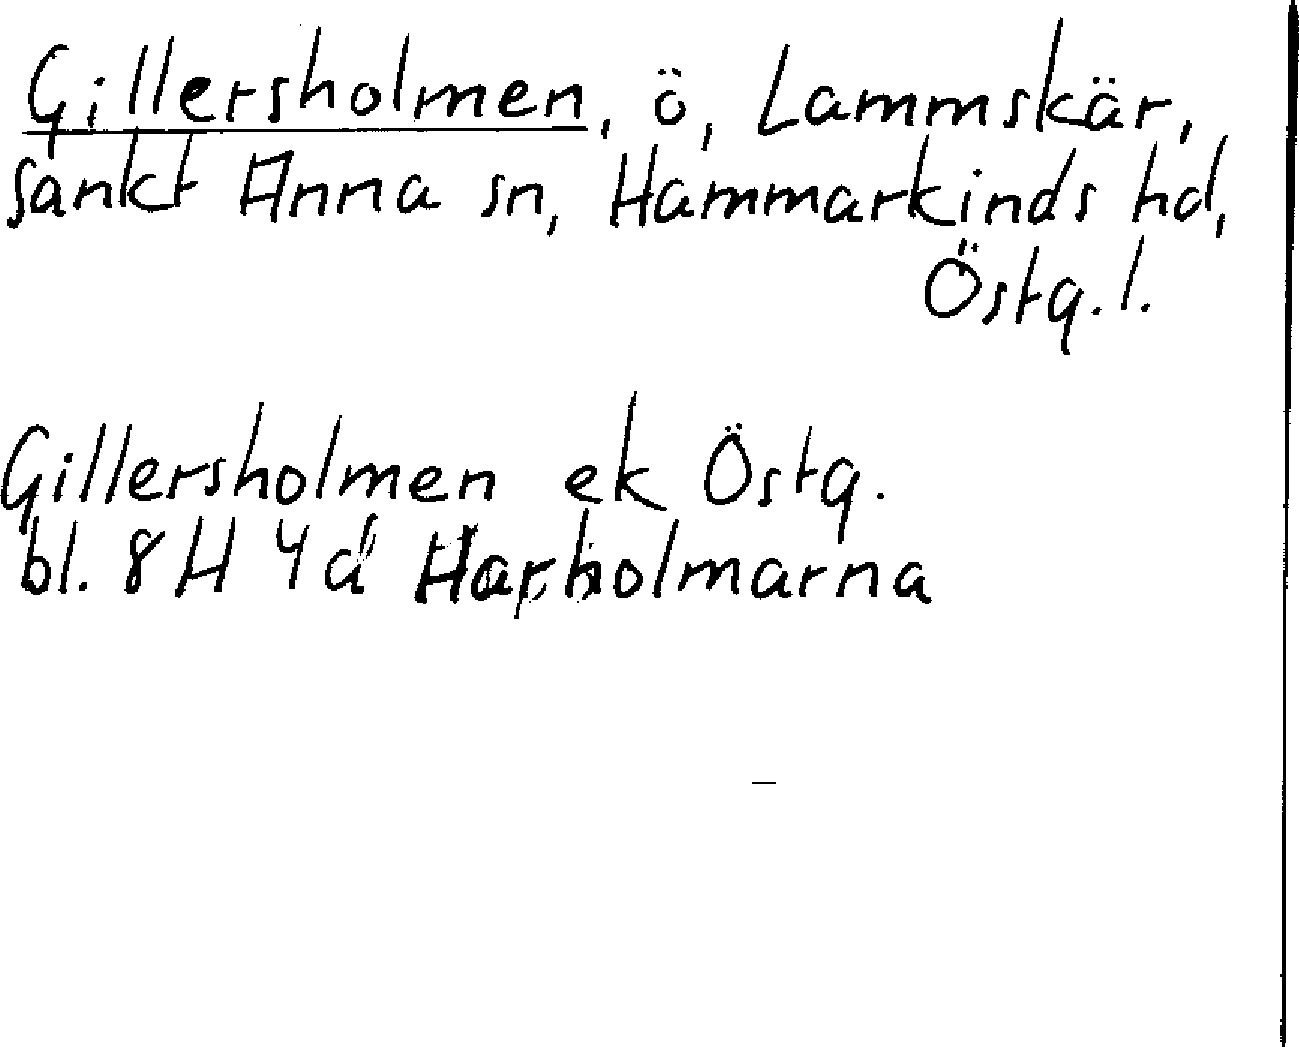 Gillersholmen, ö, Lammskär,
Sankt Anna sn, Hammarkinds hd,
Östg. l.
Gillersholmen ek Östg.
bl. 8H 4d Harholmarna